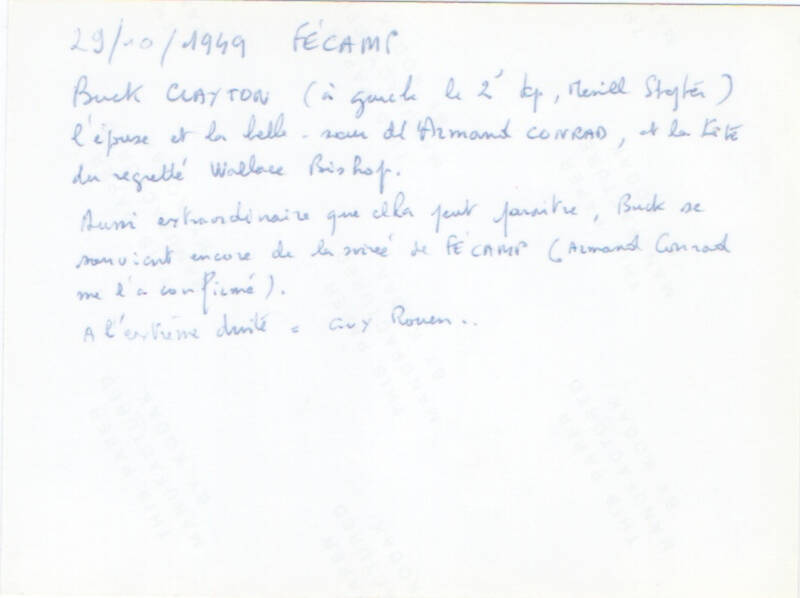 29/10/1949 FÉCAMP
Buck CLAYTON (à gauche le 2e tp, Merill Stepter)
l'épouse et la belle-sœur de Armand CONRAD, et la tête
du regretté Wallace Bishop.
Aussi extraordinaire que cela peut paraitre, Buck se
souvient encore de la soirée de FÉCAMP (Armand Conrad
me l'a confirmé).
A l'extrême droite = Guy Rouen..
THIS PAPER
MANUFACTURED
BY KODAK